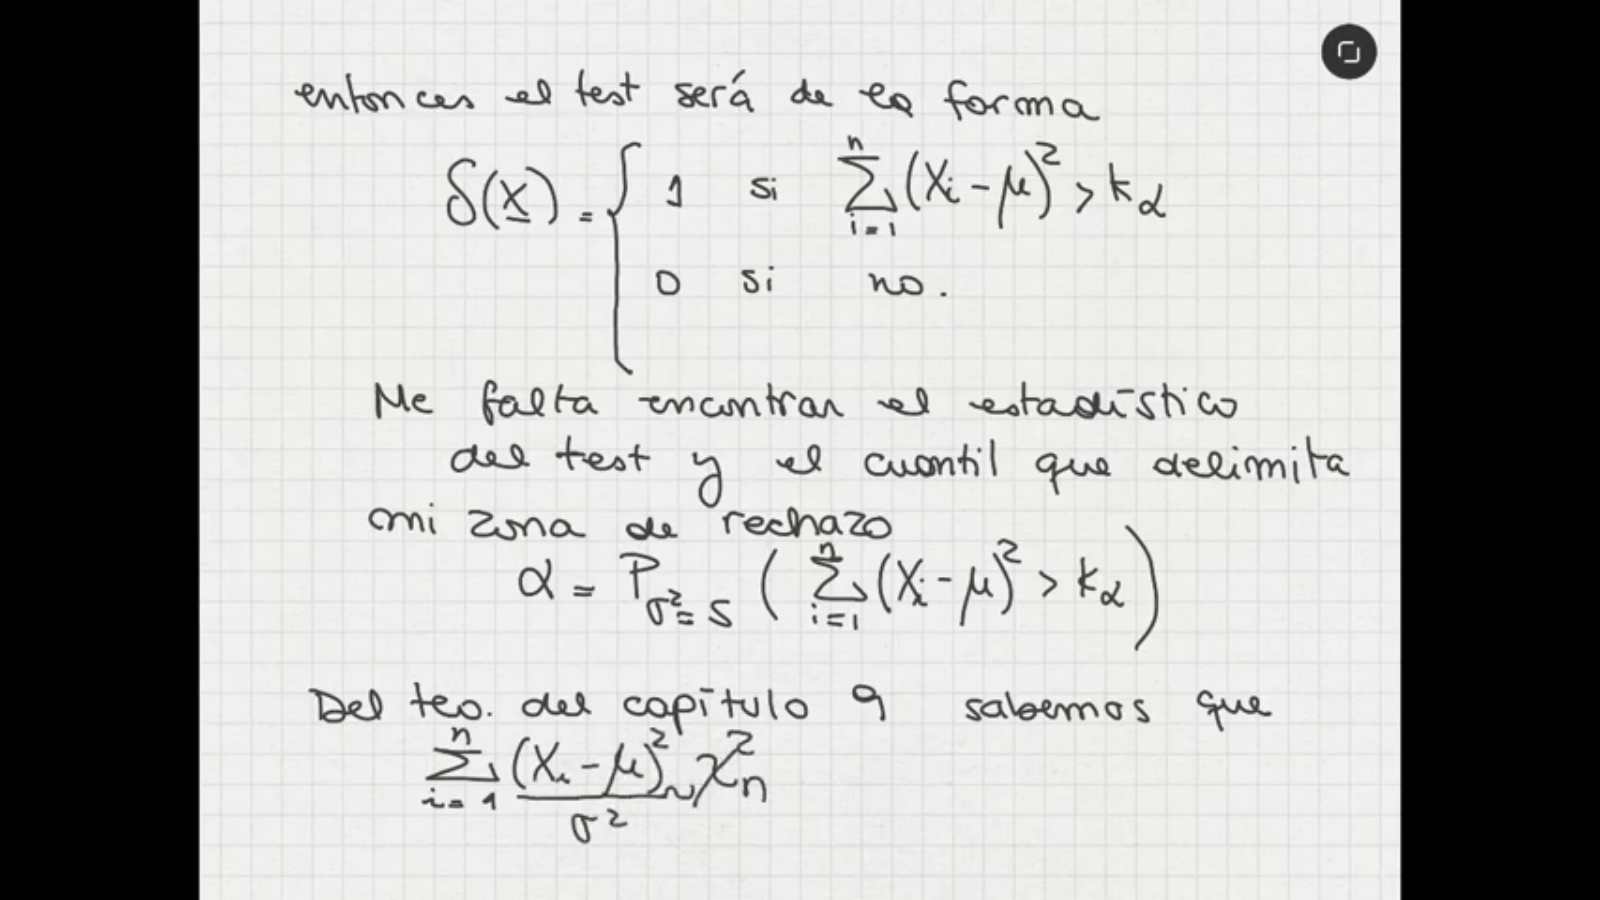 entonces el test será de la forma
δ(X) = { 1 si ∑_{i=1}^{n} (Xi - μ)² > kα
0 si no.
Me falta encontrar el estadístico
del test y el cuantil que delimita
mi zona de rechazo
α = P_{σ²=5} ( ∑_{i=1}^{n} (Xi - μ)² > kα )
Del teo. del capítulo 9 sabemos que
∑_{i=1}^{n} (Xi - μ)² / σ² ~ χ²n